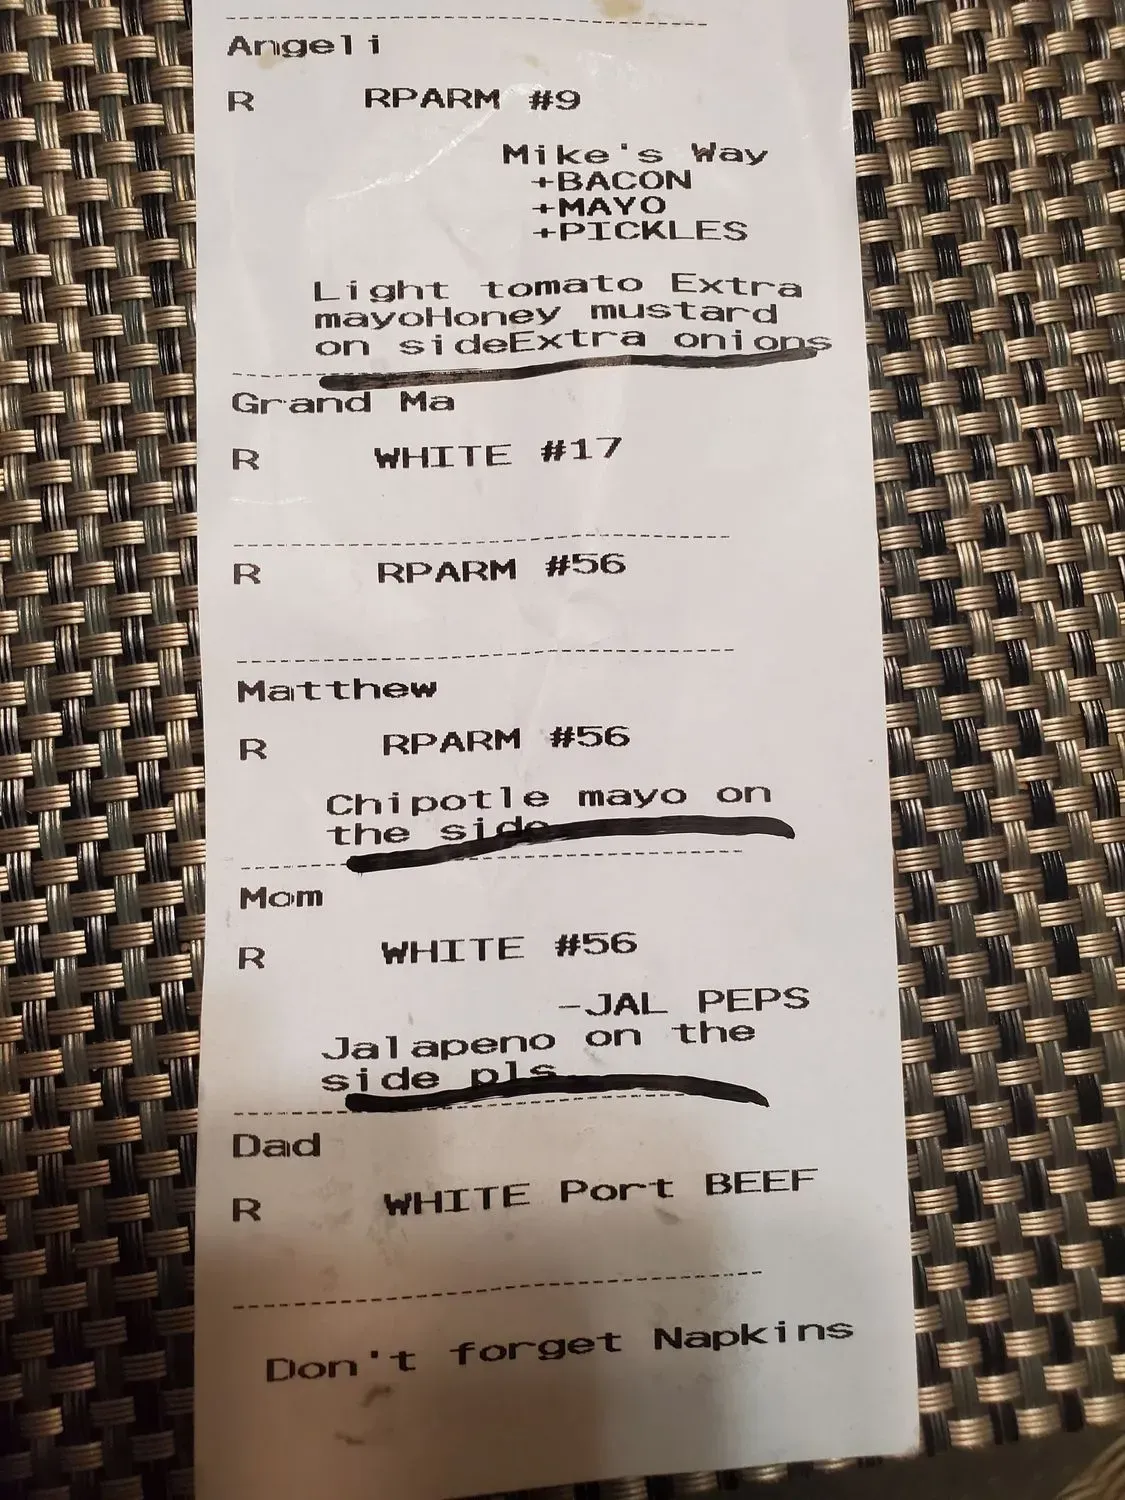 Angeli
R RPARM #9
Mike's Way
+BACON
+MAYO
+PICKLES
Light tomato Extra
mayoHoney mustard
on sideExtra onions
Grand Ma
R WHITE #17
R RPARM #56
Matthew
R RPARM #56
Chipotle mayo on
the side
Mom
R WHITE #56
-JAL PEPS
Jalapeno on the
side pls
Dad
R WHITE Port BEEF
Don't forget Napkins